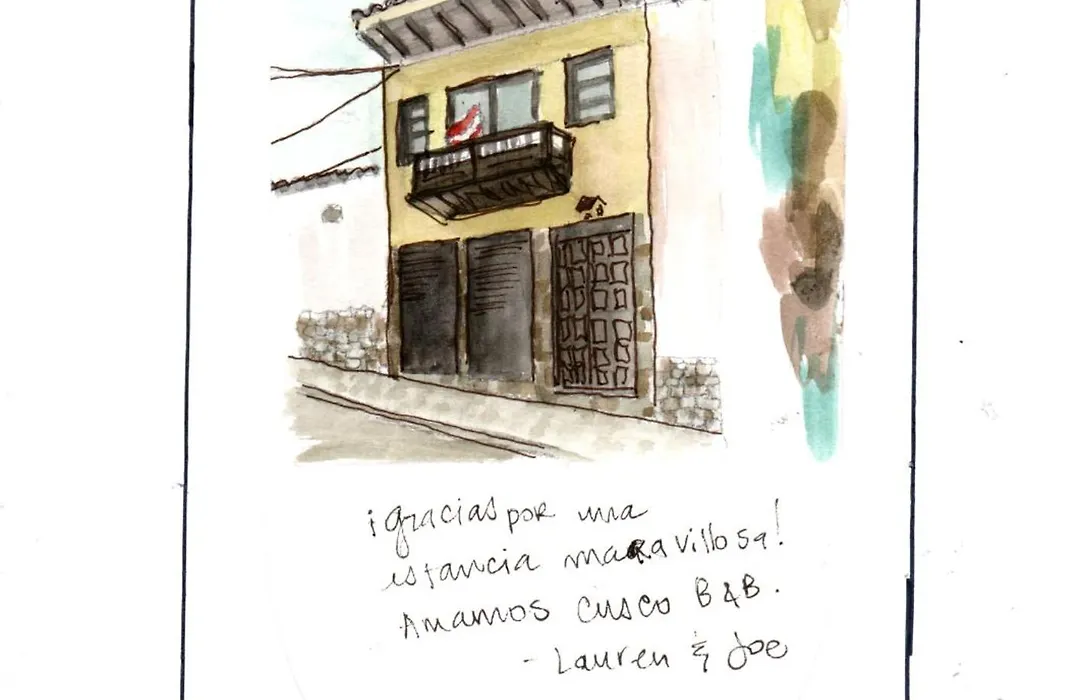 ¡gracias por una
estancia maravillosa!
Amamos Cusco B&B.
- Lauren & Joe